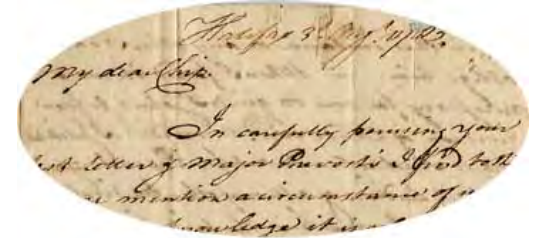 Halifax 3d Augt. 1782.
My dear Chip.
In carefully perusing your
last letter & Major Prevost's I find both
mention a circumstance of
knowledge it is